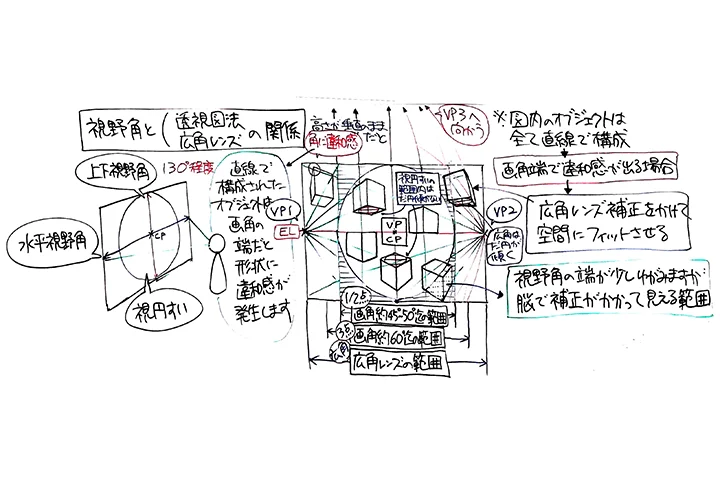 視野角と(透視図法
広角レンズ)の関係
上下視野角
130°程度
水平視野角
CP
視円すい
直線で
構成された
オブジェクトは
画角の
端だと
形状に
違和感が
発生します
高さが垂直のまま
だと
角に違和感
VP3へ
向かう
VP1
EL
視円すいの
範囲内は
VP
CP
VP2
広角は
だ円が
傾く
1/2点
画角約45°~50°迄の範囲
画角約60°迄の範囲
広角
広角レンズの範囲
※図内のオブジェクトは
全て直線で構成
画角端で違和感が出る場合
広角レンズ補正をかけて
空間にフィットさせる
視野角の端が少しゆがみますが
脳で補正がかかって見える範囲